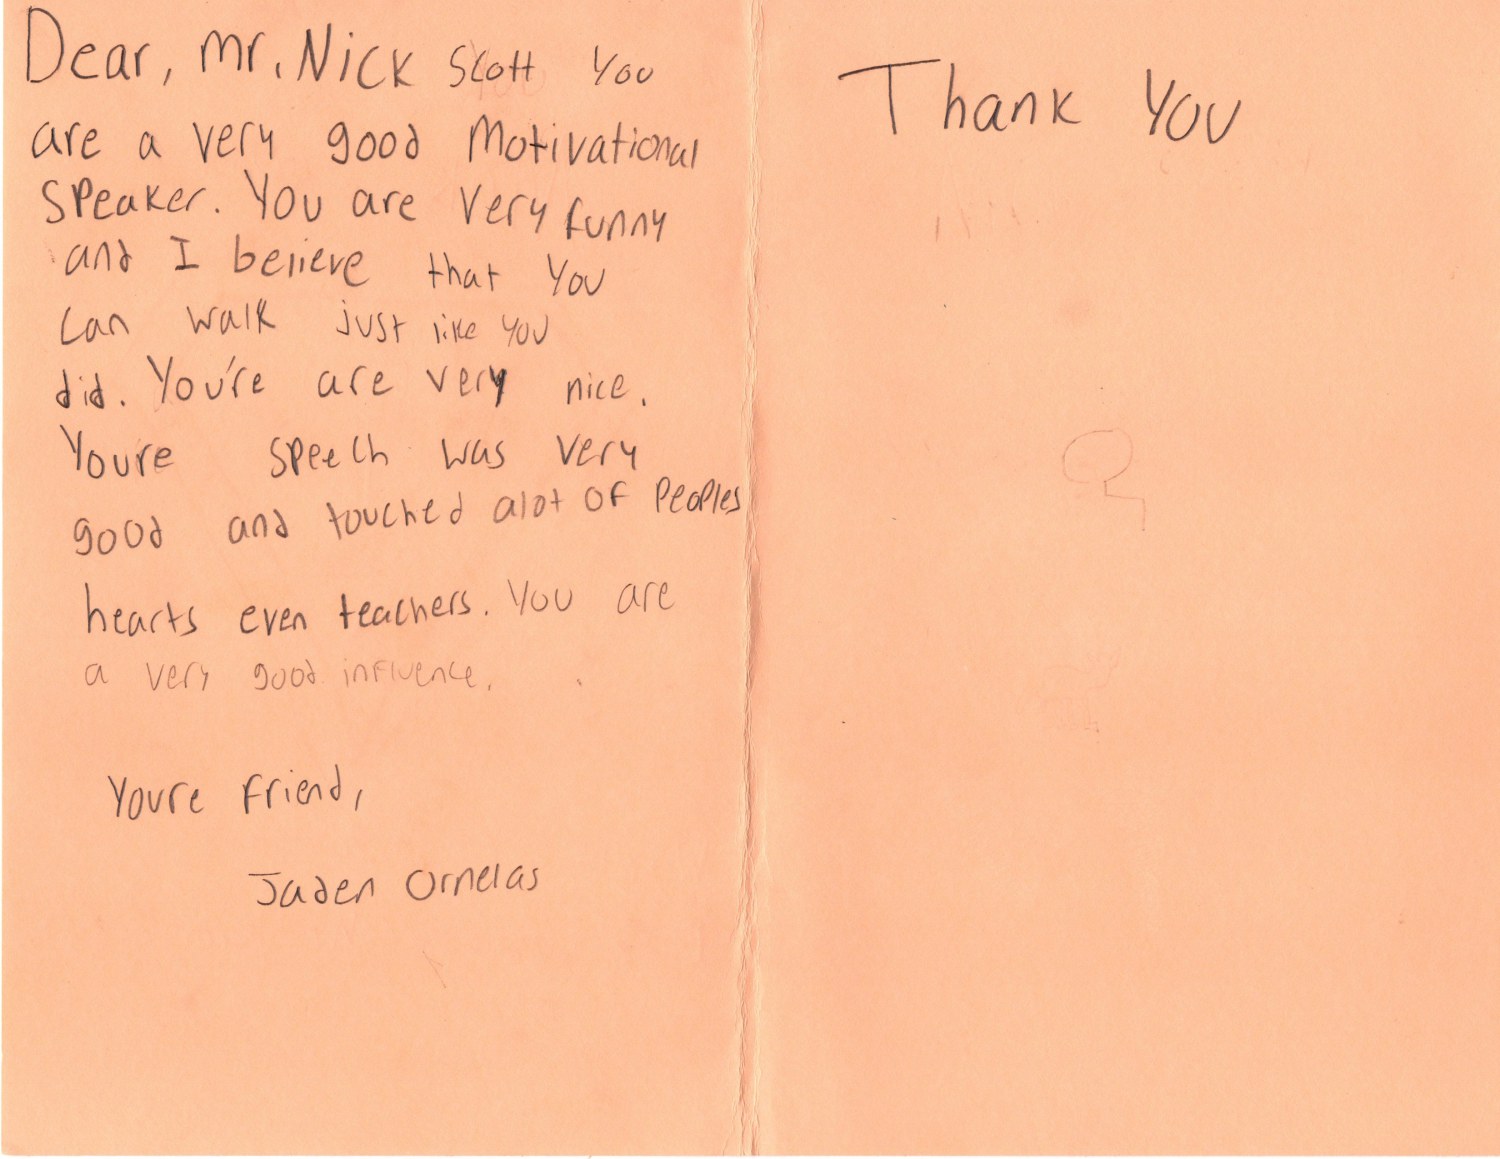 Dear, Mr. Nick Scott You
are a very good Motivational
Speaker. You are very funny
and I believe that you
can walk just like you
did. You're are very nice.
Youre speech was very
good and touched alot of peoples
hearts even teachers. You are
a very good influence.
Youre friend,
Jaden Ornelas
Thank You